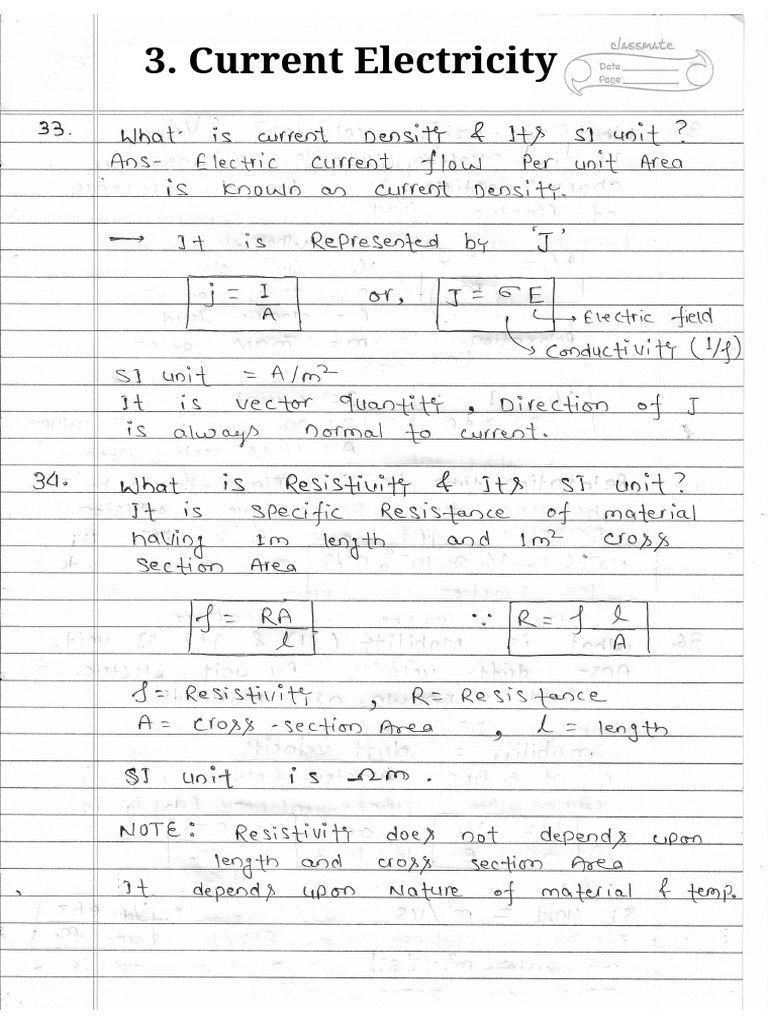 3. Current Electricity
classmate
Date
Page
33. What is current Density & Its SI unit?
Ans- Electric current flow Per unit Area
is known as current Density.
→ It is Represented by 'J'
j = I/A or, J = σ E
→ Electric field
→ Conductivity (1/ρ)
SI unit = A/m²
It is vector quantity, Direction of J
is always normal to current.
34. What is Resistivity & Its SI unit?
It is specific Resistance of material
having 1m length and 1m² cross
section Area
ρ = RA/l ∵ R = ρ l/A
ρ = Resistivity, R = Resistance
A = cross-section Area, l = length
SI unit is Ωm.
NOTE: Resistivity does not depends upon
length and cross section Area
It depends upon Nature of material & temp.